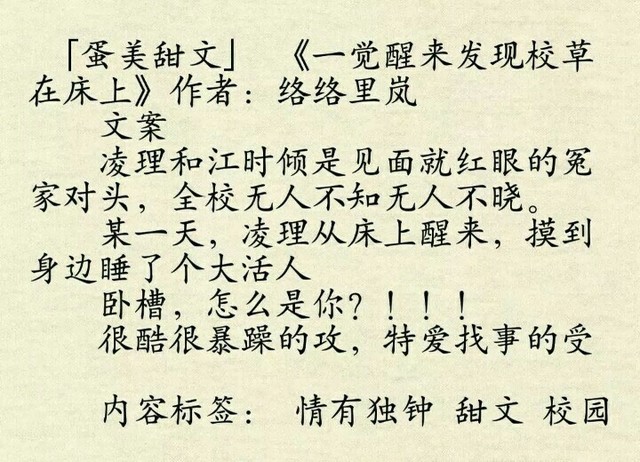 「蛋美甜文」 《一觉醒来发现校草
在床上》作者：络络里岚
文案
凌理和江时倾是见面就红眼的冤
家对头，全校无人不知无人不晓。
某一天，凌理从床上醒来，摸到
身边睡了个大活人
卧槽，怎么是你？！！！
很酷很暴躁的攻，特爱找事的受
内容标签： 情有独钟 甜文 校园